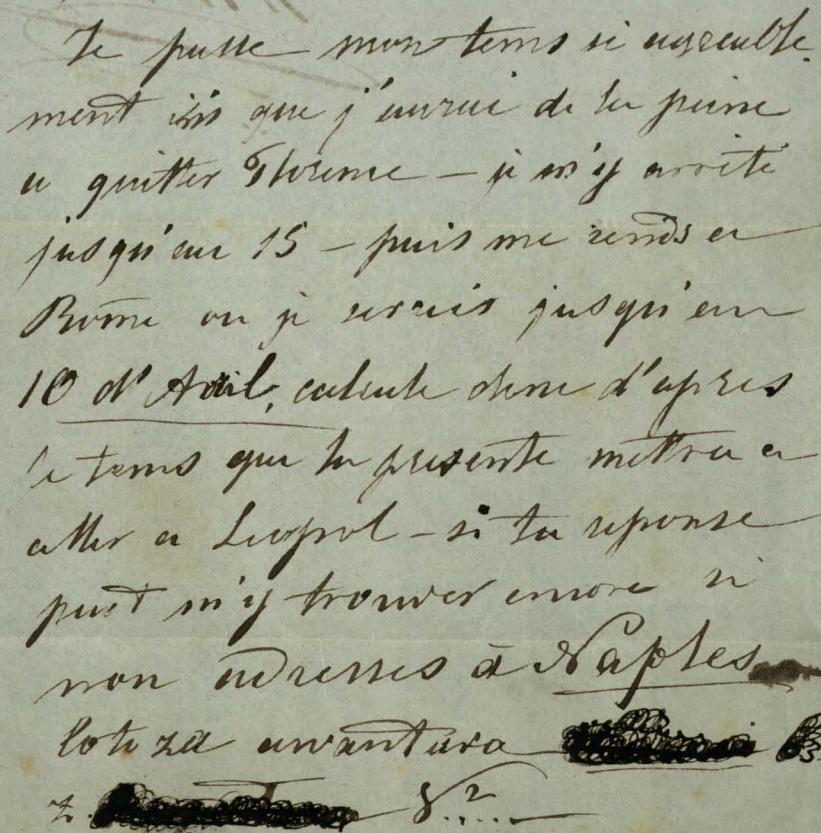 Je passe mon tems si agreable-
ment ici que j'aurai de la peine
a quitter Florence – je m'y arrête
jusqu'au 15 – puis me rends a
Rome ou je serais jusqu'au
10 d'Avril, calcule donc d'apres
le tems que la presente mettra a
aller a Leopol – si ta reponse
peut m'y trouver encore si
non adresses à Naples
Coto za awantura
z.